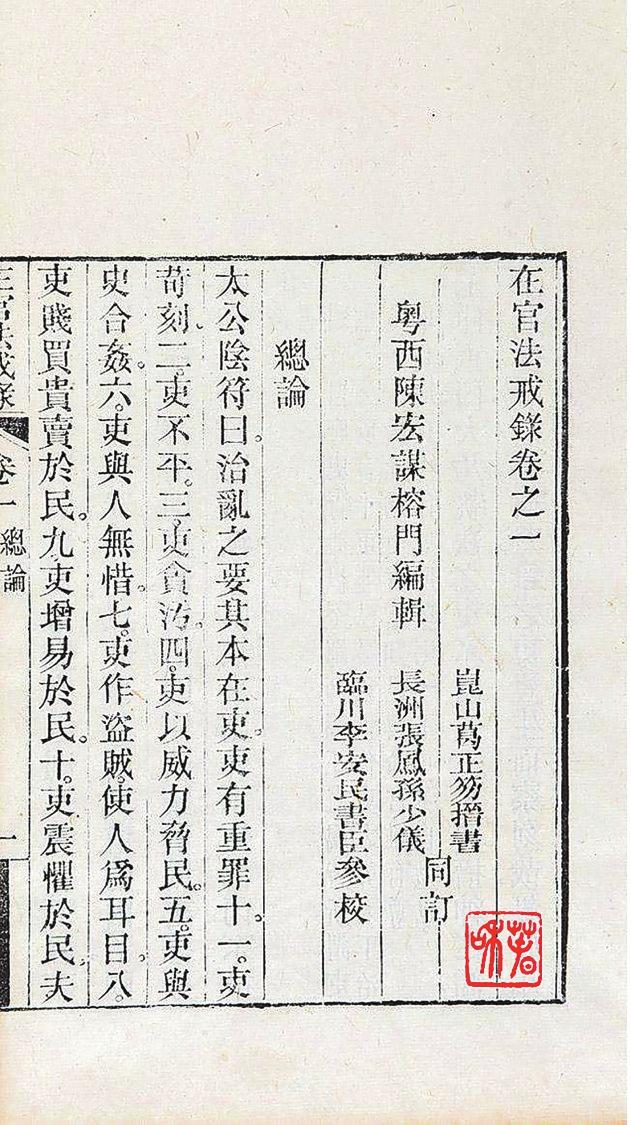 在官法戒錄卷之一
崑山葛正笏搢書
粵西陳宏謀榕門編輯
長洲張鳳孫少儀
同訂
臨川李安民書臣參校
總論
太公陰符曰。治亂之要其本在吏。吏有重罪十。一。吏
苛刻。二。吏不平。三。吏貪污。四。吏以威力脅民。五。吏與
史合姦。六。吏與人無惜。七。吏作盜賊。使人爲耳目。八。
吏賤買貴賣於民。九吏增易於民。十。吏震懼於民。夫
在官法戒錄
卷一
總論
一